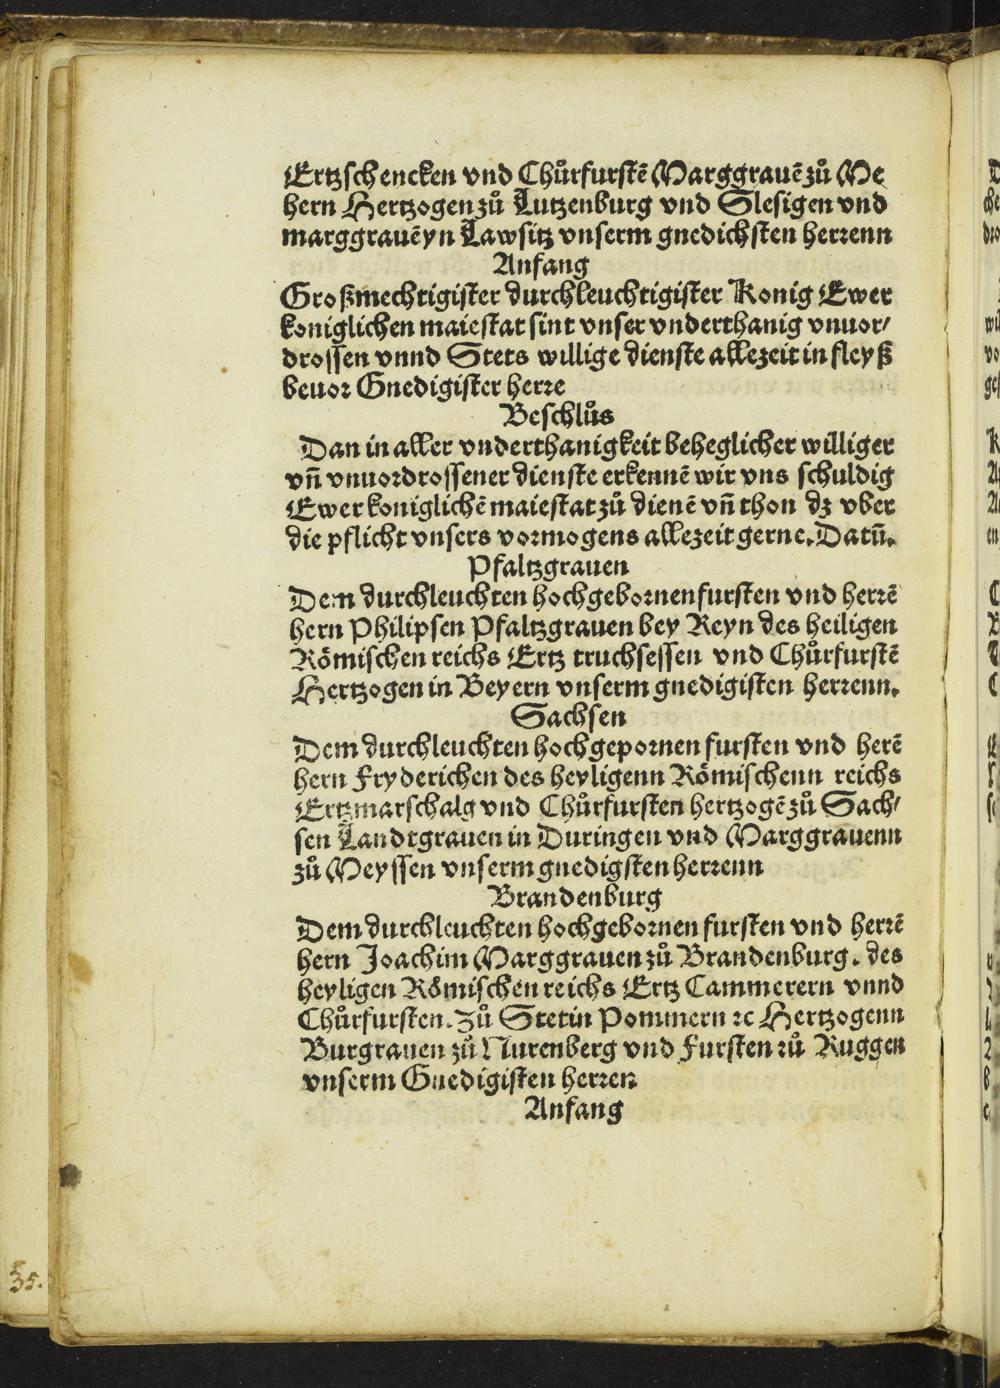 Ertzschencken vnd Chůrfurstē Marggrauē zů Me
hern Hertzogen zů Lutzenburg vnd Slesigen vnd
marggrauē yn Lawsitz vnserm gnedichsten herꝛenn
Anfang
Großmechtigister durchleuchtigister Konig Ewer
koniglichen maiestat sint vnser vnderthanig vnuor/
drossen vnnd Stets willige dienste allezeit in fleyß
beuoꝛ Gnedigister herꝛe
Beschlůs
Dan in aller vnderthanigkeit beheglicher williger
vn̄ vnuoꝛdrossener dienste erkennē wir vns schuldig
Ewer koniglichē maiestat zů dienē vn̄ thon dz vber
die pflicht vnsers voꝛmogens allezeit gerne. Datū.
Pfaltzgrauen
Dem durchleuchten hochgeboꝛnen fursten vnd herꝛē
hern Philipsen Pfaltzgrauen bey Reyn des heiligen
Rőmischen reichs Ertz truchsessen vnd Chůrfurstē
Hertzogen in Beyern vnserm gnedigisten herꝛenn.
Sachsen
Dem durchleuchten hochgepoꝛnen fursten vnd herē
hern Fryderichen des heyligenn Rőmischenn reichs
Ertzmarschalg vnd Chůrfursten hertzogē zů Sach/
sen Landtgrauen in Duringen vnd Marggrauenn
zů Meyssen vnserm gnedigsten herꝛenn
Brandenburg
Dem durchleuchten hochgeboꝛnen fursten vnd herꝛē
hern Joachim Marggrauen zů Brandenburg. des
heyligen Rőmischen reichs Ertz Cammerern vnnd
Chůrfursten. zů Stetin Pommern ꝛc Hertzogenn
Burgrauen zů Nurenberg vnd Fursten zů Ruggen
vnserm Gnedigisten herꝛen
Anfang
35.